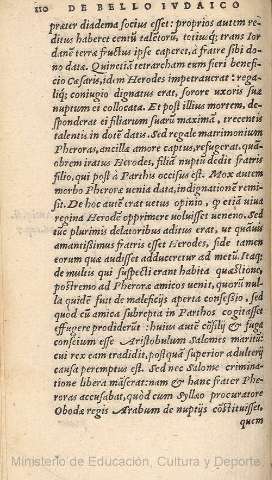 110 DE BELLO IVDAICO
præter diadema socius esset: proprios autem re-
ditus haberet centũ talẽtorũ, totiusq; trans Ior
danẽ terræ fructus ipse caperet, à fratre sibi do-
no datæ. Quinetiã tetrarcham eum fieri benefi-
cio Cæsaris, idem Herodes impetrauerat: rega-
liq; coniugio dignatus erat, sorore vxoris suæ
nuptum ei collocata. Et post illius mortem, de-
sponderat ei filiarum suarũ maximã, trecentis
talentis in dotẽ datis. Sed regale matrimonium
Pheroras, ancillæ amore captus, refugerat. quã-
obrem iratus Herodes, filiã nuptũ dedit fratris
filio, qui post à Parthis occisus est. Mox autem
morbo Pheroræ venia data, indignationẽ remi-
sit. De hoc autẽ erat vetus opinio, q̃ etiã viua
regina Herodẽ opprimere voluisset veneno. Sed
tũc plurimis delatoribus aditus erat, ut quãuis
amantissimus fratris esset Herodes, fide tamen
eorum quæ audisset adduceretur ad metũ. Itaq;
de multis qui suspecti erant habita quæstione,
postremo ad Pheroræ amicos venit, quorũ nul-
la quidẽ fuit de maleficijs aperta confessio, sed
quod cũ amica subrepta in Parthos cogitasset
effugere prodiderũt: huius autẽ cõsilij & fugæ
conscium esse Aristobulum Salomes maritũ:
cui rex eam tradidit, postquã superior adulterij
causa peremptus est. Sed nec Salome crimina-
tione libera mãserat: nam & hanc frater Phe-
roras accusabat, quòd cum Syllæo procuratore
Obodæ regis Arabum de nuptijs cõstituisset,
quem
Ministerio de Educación, Cultura y Deporte,